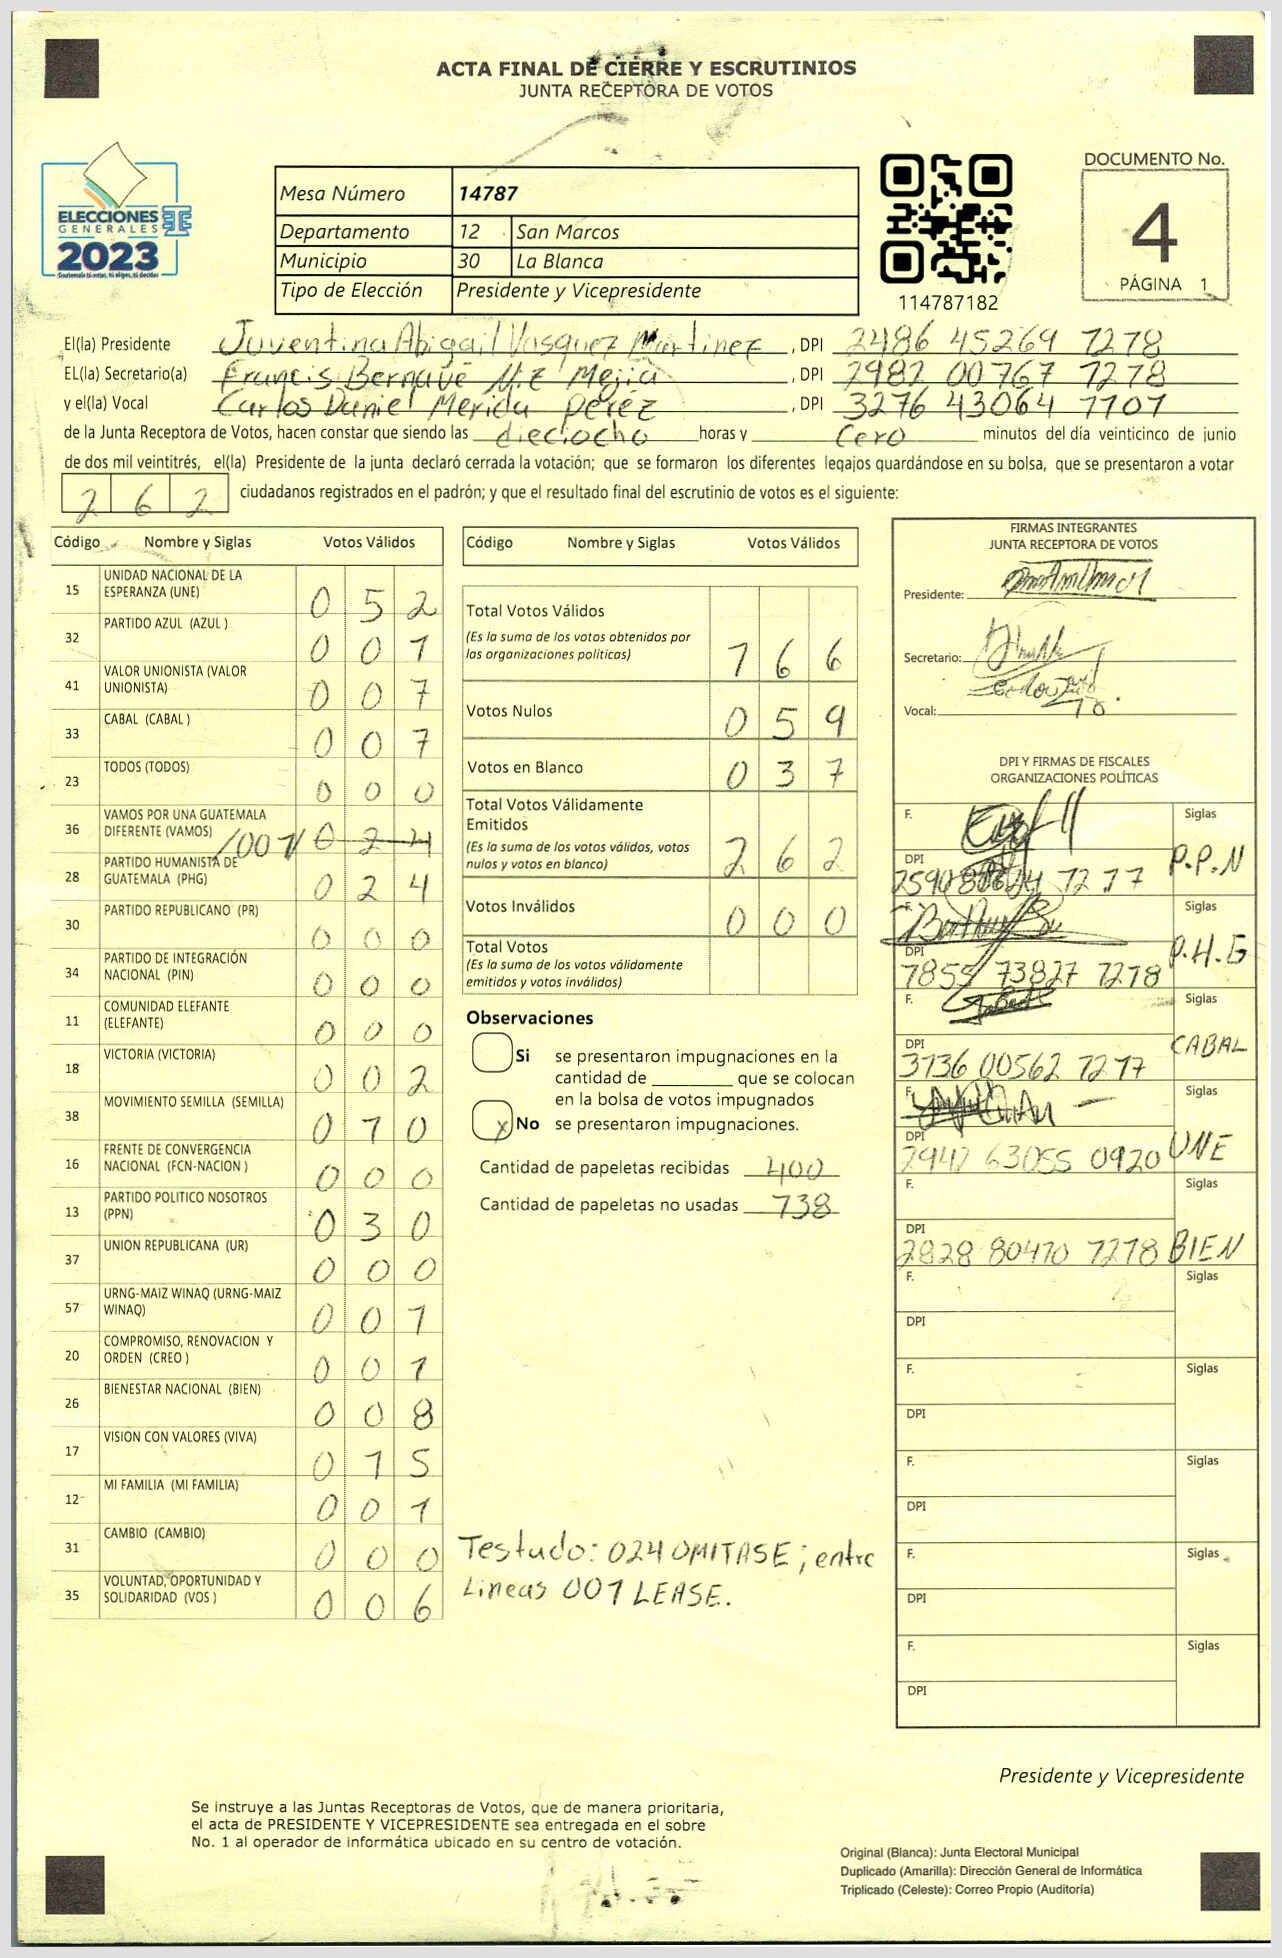 ACTA FINAL DE CIERRE Y ESCRUTINIOS
JUNTA RECEPTORA DE VOTOS
ELECCIONES
GENERALES
2023
Mesa Número 14787
Departamento 12 San Marcos
Municipio 30 La Blanca
Tipo de Elección Presidente y Vicepresidente
114787182
DOCUMENTO No.
4
PÁGINA 1
El(la) Presidente Juventina Abigail Vasquez Martinez, DPI 2486 45269 1278
EL(la) Secretario(a) Francis Bernavé Mejia, DPI 2982 00767 1278
y el(la) Vocal Carlos Daniel Merida Peréz, DPI 3276 43064 1107
de la Junta Receptora de Votos, hacen constar que siendo las dieciocho horas y Cero minutos del día veinticinco de junio
de dos mil veintitrés, el(la) Presidente de la junta declaró cerrada la votación; que se formaron los diferentes legajos guardándose en su bolsa, que se presentaron a votar
262 ciudadanos registrados en el padrón; y que el resultado final del escrutinio de votos es el siguiente:
Código Nombre y Siglas Votos Válidos
15 UNIDAD NACIONAL DE LA ESPERANZA (UNE) 052
32 PARTIDO AZUL (AZUL ) 001
41 VALOR UNIONISTA (VALOR UNIONISTA) 007
33 CABAL (CABAL ) 007
23 TODOS (TODOS) 000
36 VAMOS POR UNA GUATEMALA DIFERENTE (VAMOS) /001/ 024
28 PARTIDO HUMANISTA DE GUATEMALA (PHG) 024
30 PARTIDO REPUBLICANO (PR) 000
34 PARTIDO DE INTEGRACIÓN NACIONAL (PIN) 000
11 COMUNIDAD ELEFANTE (ELEFANTE) 000
18 VICTORIA (VICTORIA) 002
38 MOVIMIENTO SEMILLA (SEMILLA) 010
16 FRENTE DE CONVERGENCIA NACIONAL (FCN-NACION ) 000
13 PARTIDO POLITICO NOSOTROS (PPN) 030
37 UNION REPUBLICANA (UR) 000
57 URNG-MAIZ WINAQ (URNG-MAIZ WINAQ) 001
20 COMPROMISO, RENOVACION Y ORDEN (CREO ) 001
26 BIENESTAR NACIONAL (BIEN) 008
17 VISION CON VALORES (VIVA) 015
12 MI FAMILIA (MI FAMILIA) 001
31 CAMBIO (CAMBIO) 000
35 VOLUNTAD, OPORTUNIDAD Y SOLIDARIDAD (VOS ) 006
Código Nombre y Siglas Votos Válidos
Total Votos Válidos 166
(Es la suma de los votos obtenidos por
las organizaciones políticas)
Votos Nulos 059
Votos en Blanco 037
Total Votos Válidamente
Emitidos 262
(Es la suma de los votos válidos, votos
nulos y votos en blanco)
Votos Inválidos 000
Total Votos
(Es la suma de los votos válidamente
emitidos y votos inválidos)
Observaciones
Si se presentaron impugnaciones en la
cantidad de ________ que se colocan
en la bolsa de votos impugnados
x No se presentaron impugnaciones.
Cantidad de papeletas recibidas 400
Cantidad de papeletas no usadas 138
Testado: 024 OMITASE; entre
Lineas 001 LEASE.
FIRMAS INTEGRANTES
JUNTA RECEPTORA DE VOTOS
Presidente:
Secretario:
Vocal:
DPI Y FIRMAS DE FISCALES
ORGANIZACIONES POLÍTICAS
F. Siglas
DPI P.P.N
F. Siglas
DPI 1855 73827 1218 P.H.G
F. Siglas
DPI 3136 00562 1217 CABAL
F. Siglas
DPI 2942 63055 0920 UNE
F. Siglas
DPI 2828 80470 1218 BIEN
F. Siglas
DPI
F. Siglas
DPI
F. Siglas
DPI
F. Siglas
DPI
F. Siglas
DPI
Presidente y Vicepresidente
Se instruye a las Juntas Receptoras de Votos, que de manera prioritaria,
el acta de PRESIDENTE Y VICEPRESIDENTE sea entregada en el sobre
No. 1 al operador de informática ubicado en su centro de votación.
Original (Blanca): Junta Electoral Municipal
Duplicado (Amarilla): Dirección General de Informática
Triplicado (Celeste): Correo Propio (Auditoría)